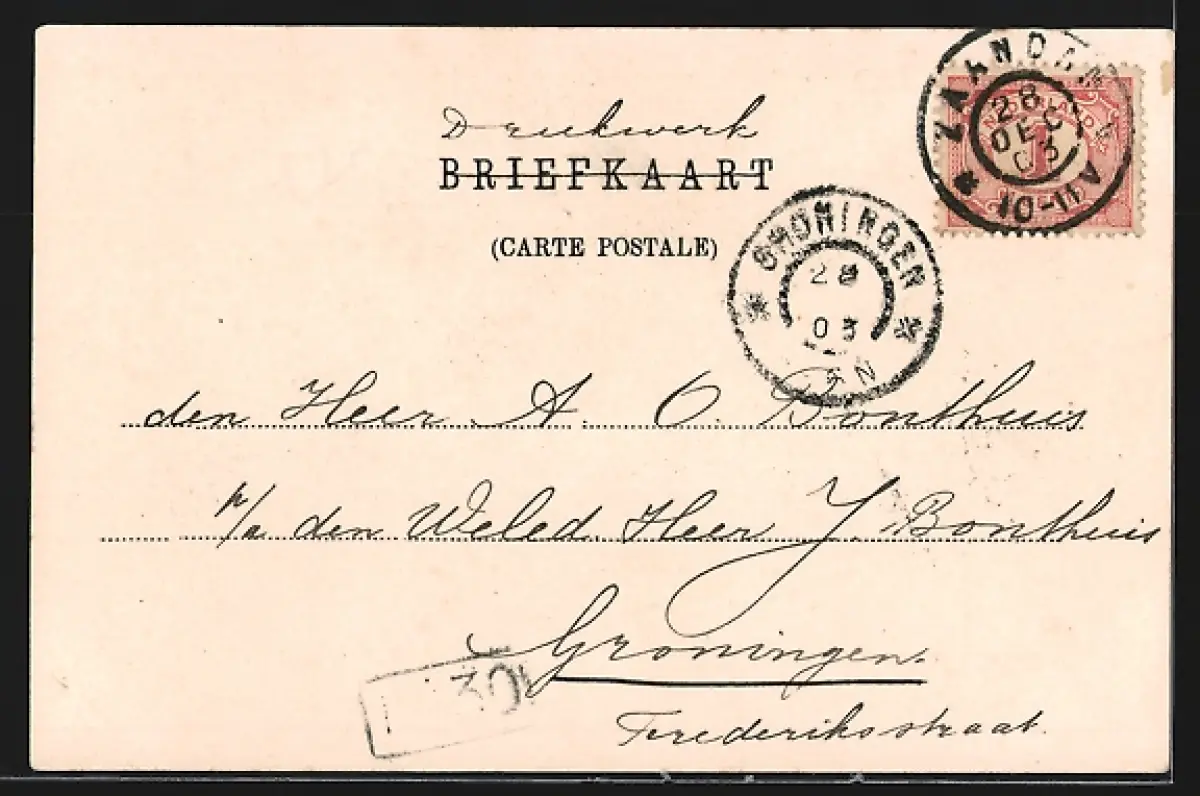 Drukwerk
BRIEFKAART
(CARTE POSTALE)
ZAANDAM
28
DEC
03
10-11V
NEDERLAND
1
GRONINGEN
28
03
N
den Heer A. O. Bonthuis
p/a. den Weled. Heer J. Bonthuis
Groningen.
Frederiksstraat.